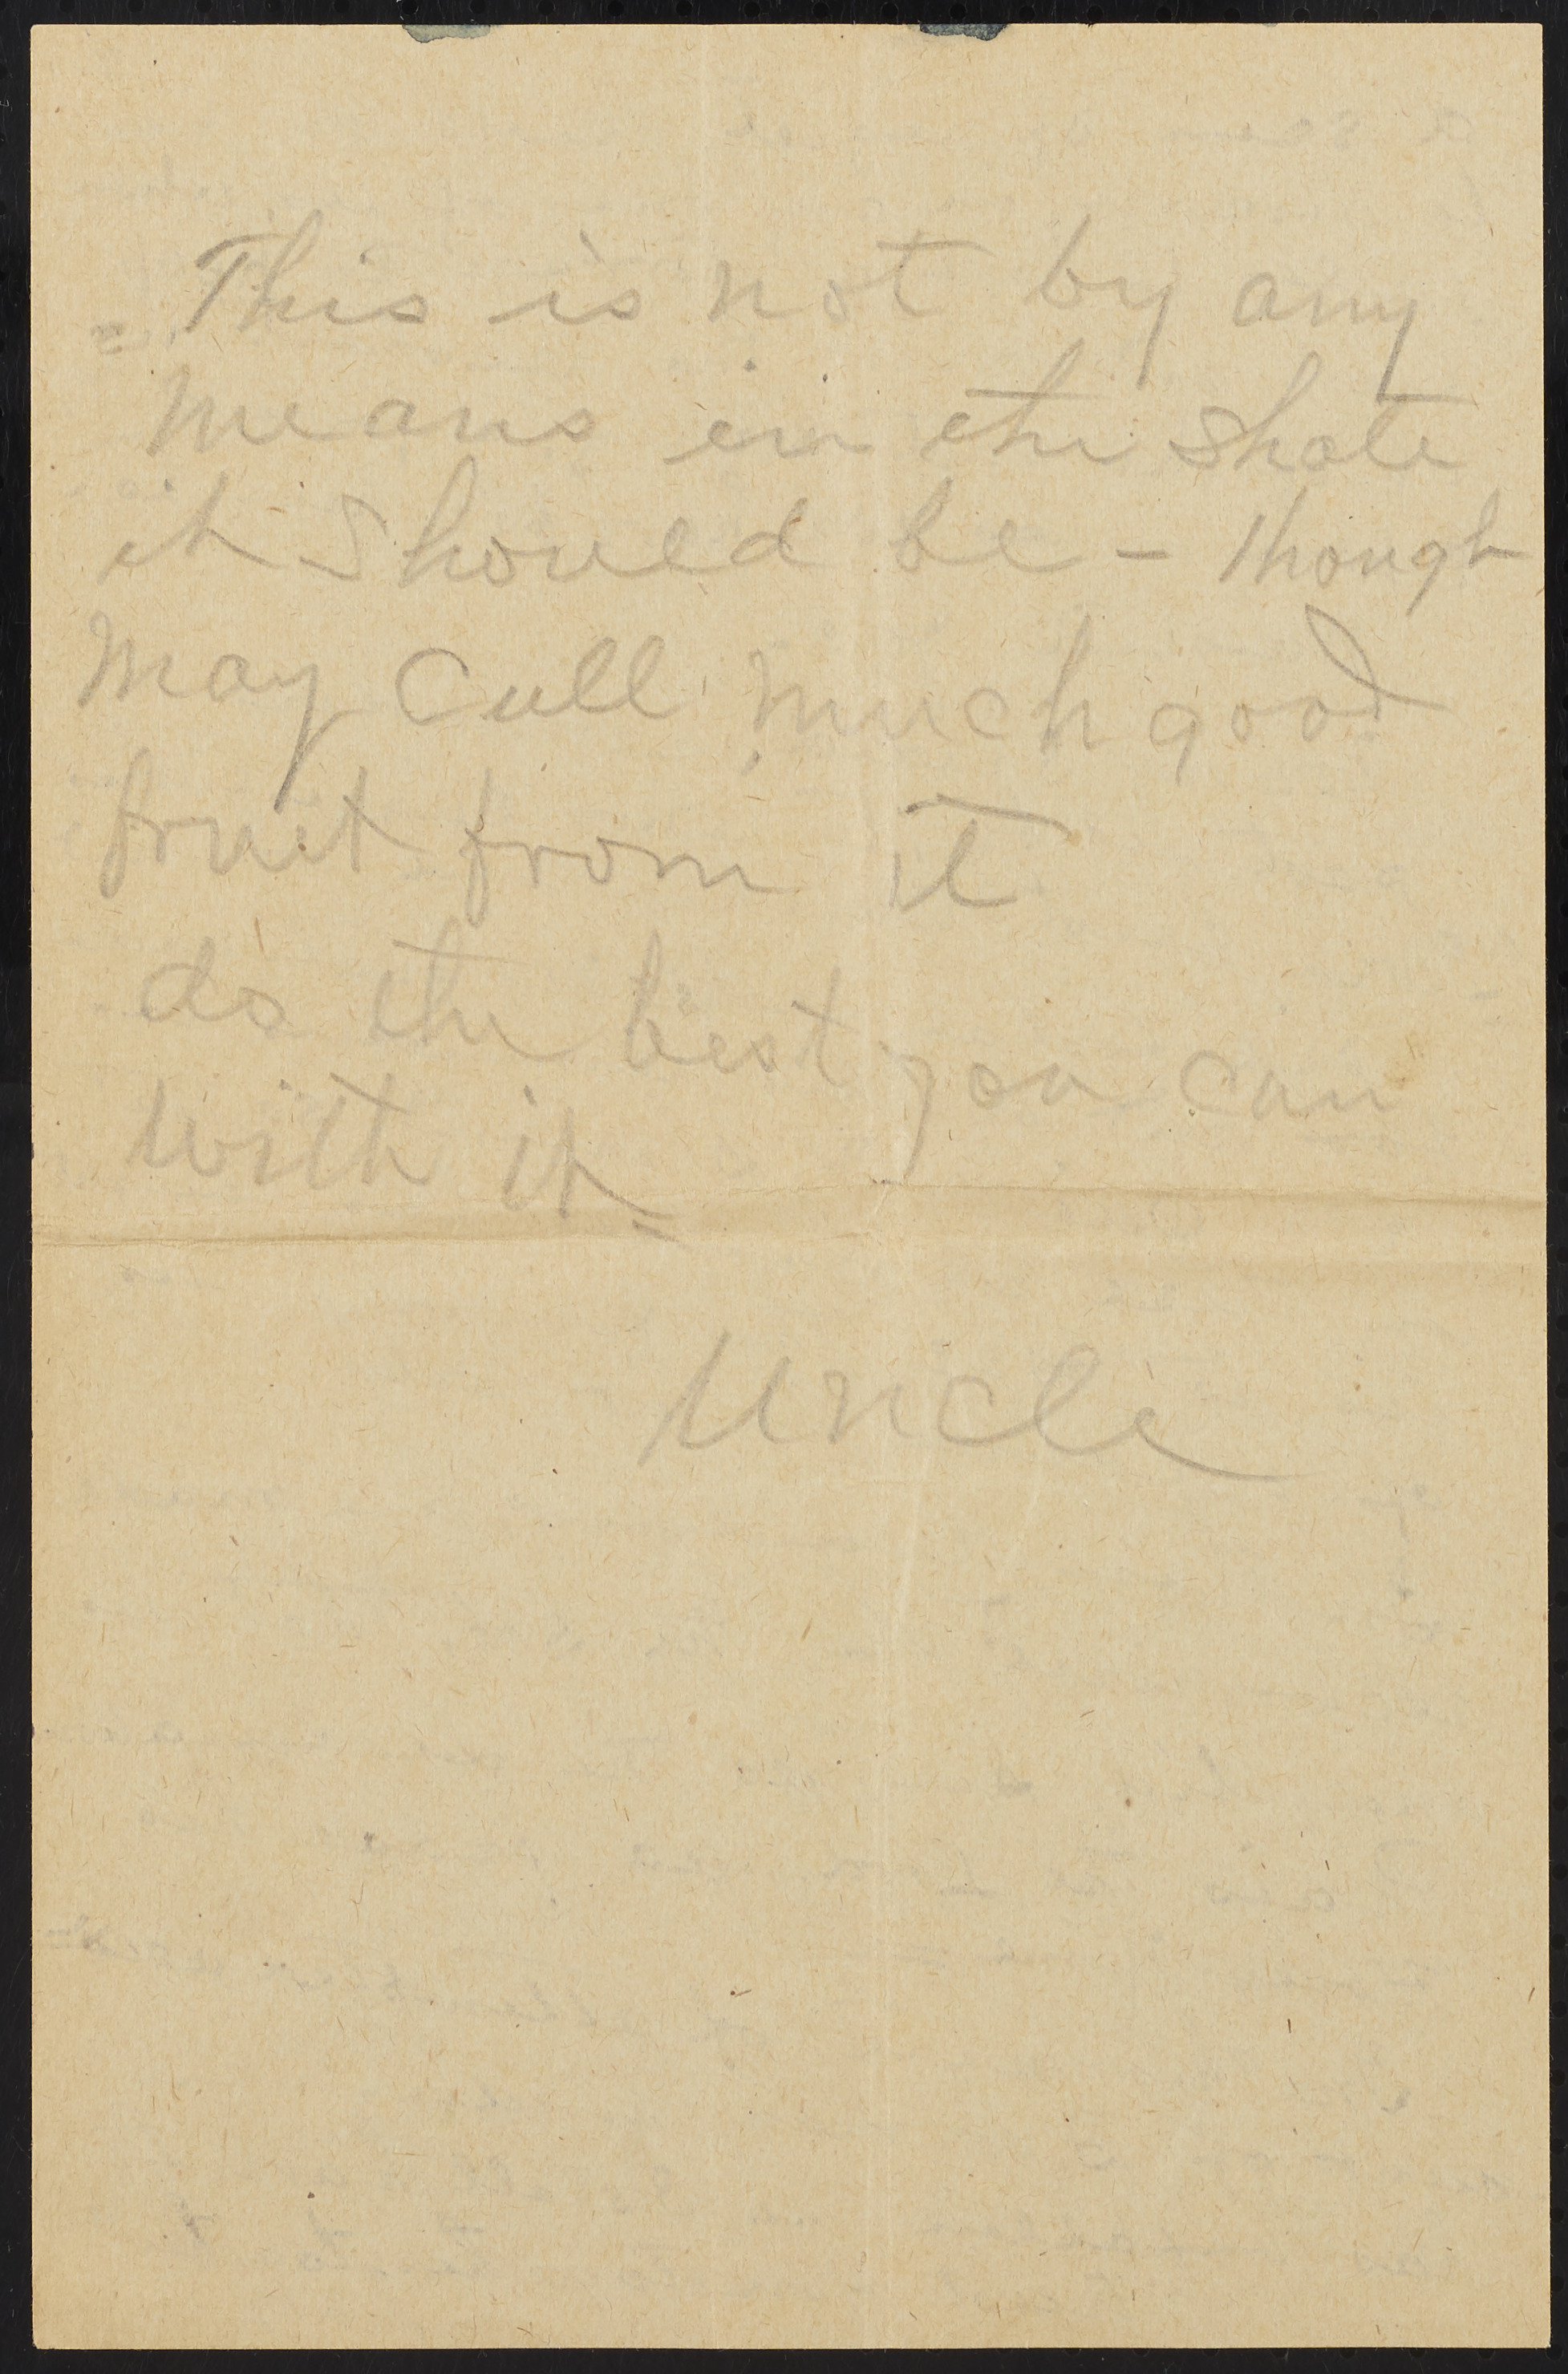 This is not by any
means in the shate
it should be - though
may cull much good
fruit from it
do the best you can
with it =
Uncle